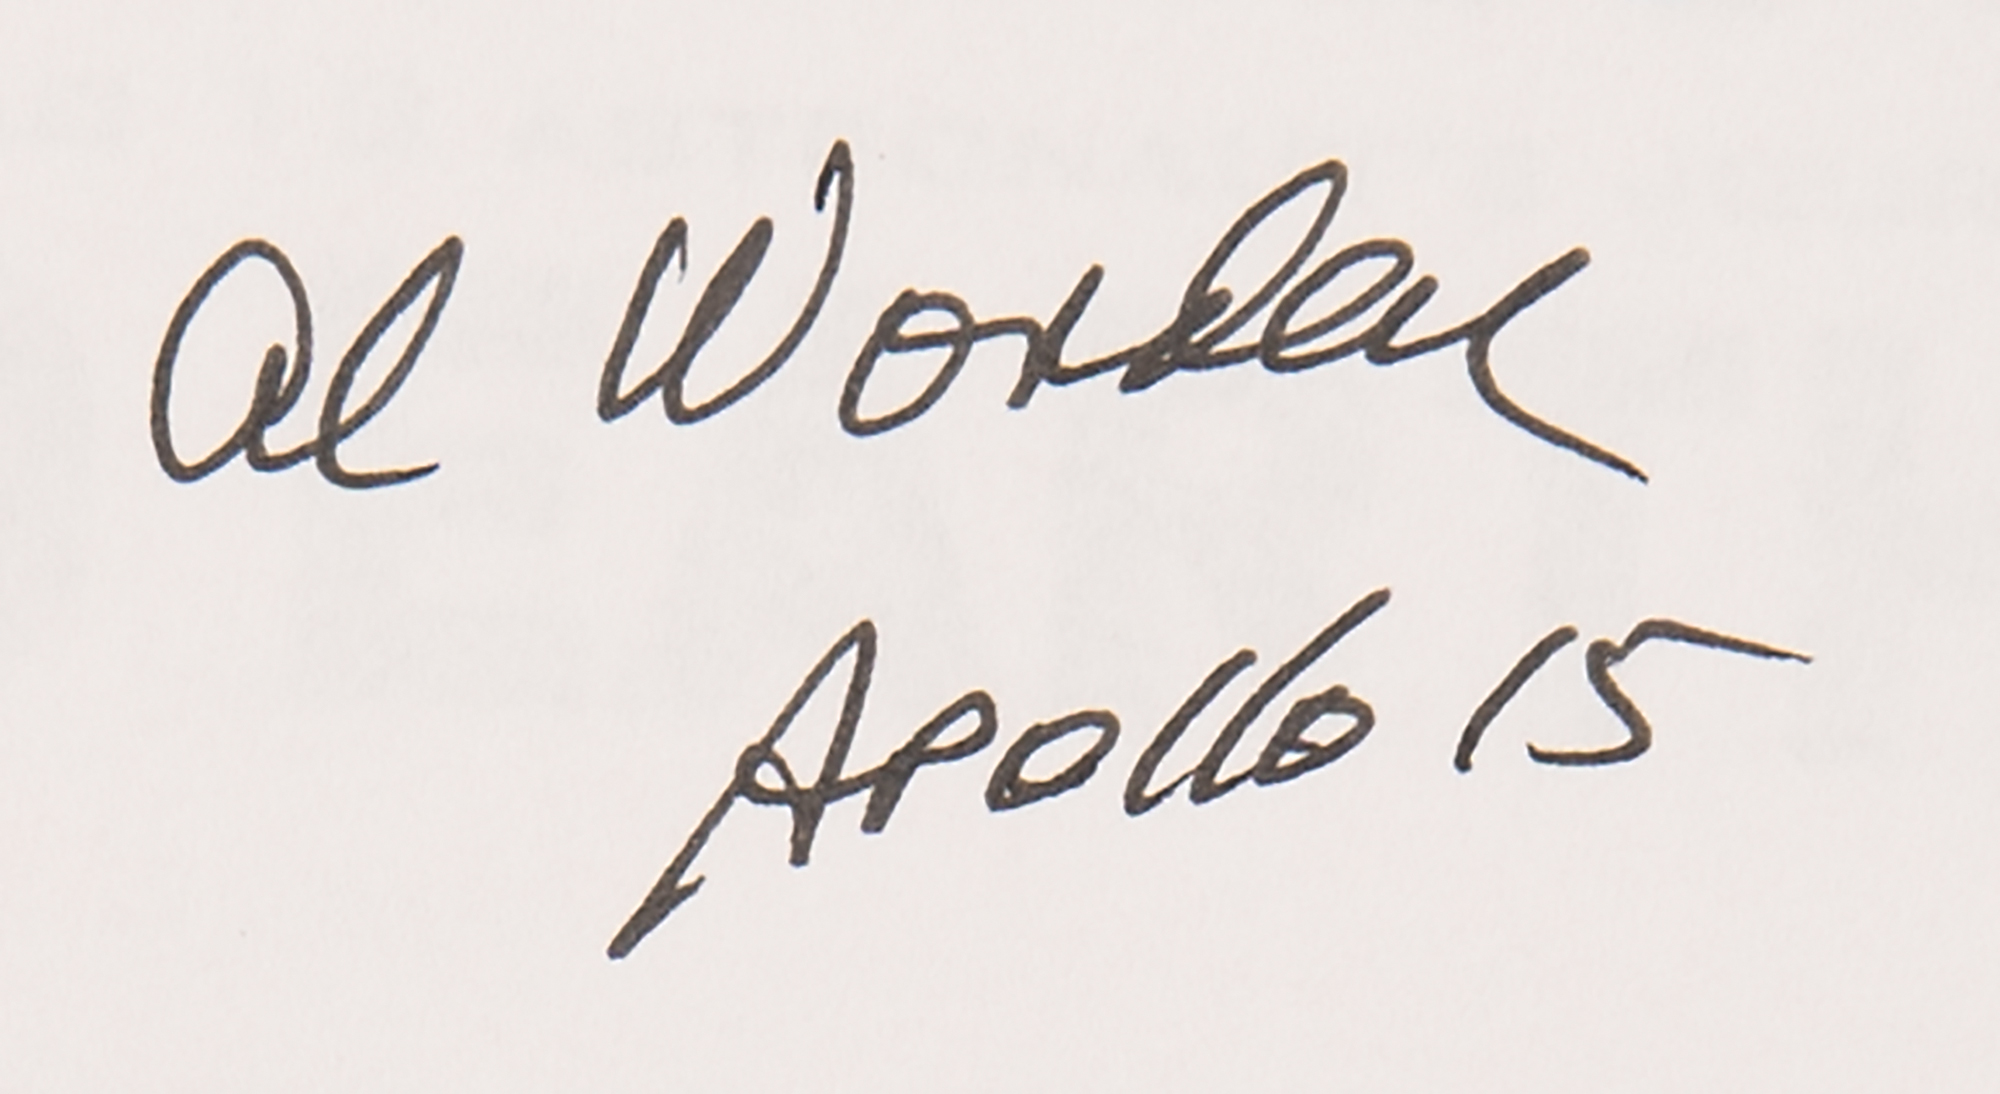 Al Worden
Apollo 15